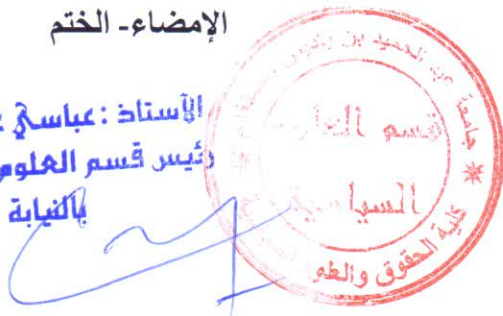 الإمضاء- الختم
الأستاذ : عباسي
رئيس قسم العلوم
بالنيابة
جامعة عبد الحميد بن باديس
قسم
السياسية
كلية الحقوق والعلوم